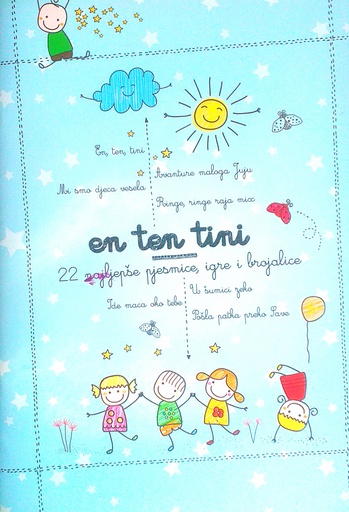 En, ten, tini
Avanture maloga Juju
Mi smo djeca vesela
Ringe, ringe raja mix
en ten tini
22 najljepše pjesmice, igre i brojalice
U šumici zeko
Ide maca oko tebe
Pošla patka preko Save